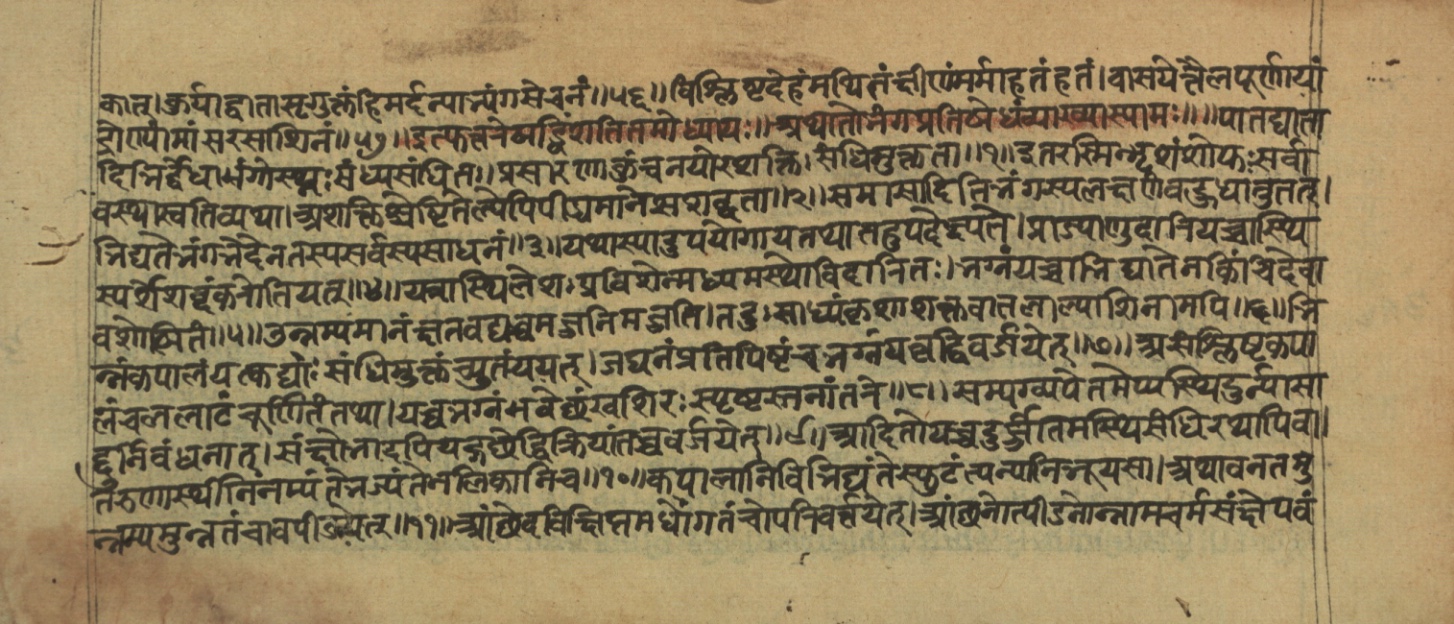 कात्। कुर्याद्वातासृगुक्तं हि मर्दनाभ्यंगसेचनं॥५६॥ विश्लिष्टदेहं मथितं क्षीणं मर्माहतं हतं। वासयेत्तैलपूर्णायां
द्रोण्यां मांसरसाशिनं॥५७॥ इत्युत्तरे षड्विंशतितमोध्यायः॥ अथातो भंगप्रतिषेधं व्याख्यास्यामः॥ ॥पातघाता
दिभिर्द्वेधा भंगोस्थ्नः संध्यसंधितः। प्रसारणाकुंचनयोरशक्तिः संधिमुक्तता॥१॥ इतरस्मिन्भृशं शोफः सर्वा
वस्थास्वतिव्यथा। अशक्तिश्चेष्टितेल्पेपि पीड्यमाने सशब्दता॥२॥ समासादिति भंगस्य लक्षणं बहुधा तु तत्।
भिद्यते भंगभेदेन तस्य सर्वस्य साधनं॥३॥ यथा स्यादुपयोगाय तथा तदुपदेक्ष्यते। प्राज्याणुदारि यच्चास्थि
स्पर्शे शब्दं करोति यत्॥४॥ यत्रास्थिलेशः प्रविशेन्मध्यमस्थ्नो विदारितः। भग्नं यच्चाभिघातेन किंचिदेवा
वशेषितं॥५॥ उन्नम्यमानं क्षतवद्यच्च मज्जनि मज्जति। तद्दुःसाध्यं कृशाशक्तवातलाल्पाशिनामपि॥६॥ भि
न्नं कपालं यत्कट्यां संधिमुक्तं च्युतं च यत्। जघनं प्रतिपिष्टं च भग्नं यच्चद्विवर्जयेत्॥७॥ असंश्लिष्टकपा
लं च ललाटं चूर्णितं तथा। यच्च भग्नं भवेच्छंखशिरःपृष्ठस्तनांतरे॥८॥ सम्यग्यपेतमप्यस्थि दुर्न्यासा
द्दुर्निबंधनात्। संक्षोभादपि यद्गच्छेद्विक्रियां तच्च वर्जयेत्॥९॥ आदितो यच्च दुर्ज्जातमस्थिसंधिरथापि वा।
तरुणास्थीनि नम्यंते भज्यंते नलिकानि च॥१०॥ कपालानि विभिद्यंते स्फुटंत्यन्यानि भूयसा। अथावनतमु
न्नम्यमुन्नतं चावपीडयेत्॥११॥ आंछेदविक्षिप्तमधोगतं चोपरिवर्त्तयेत्। आंछनोत्पीडनोन्नामचर्मसंक्षेपबं